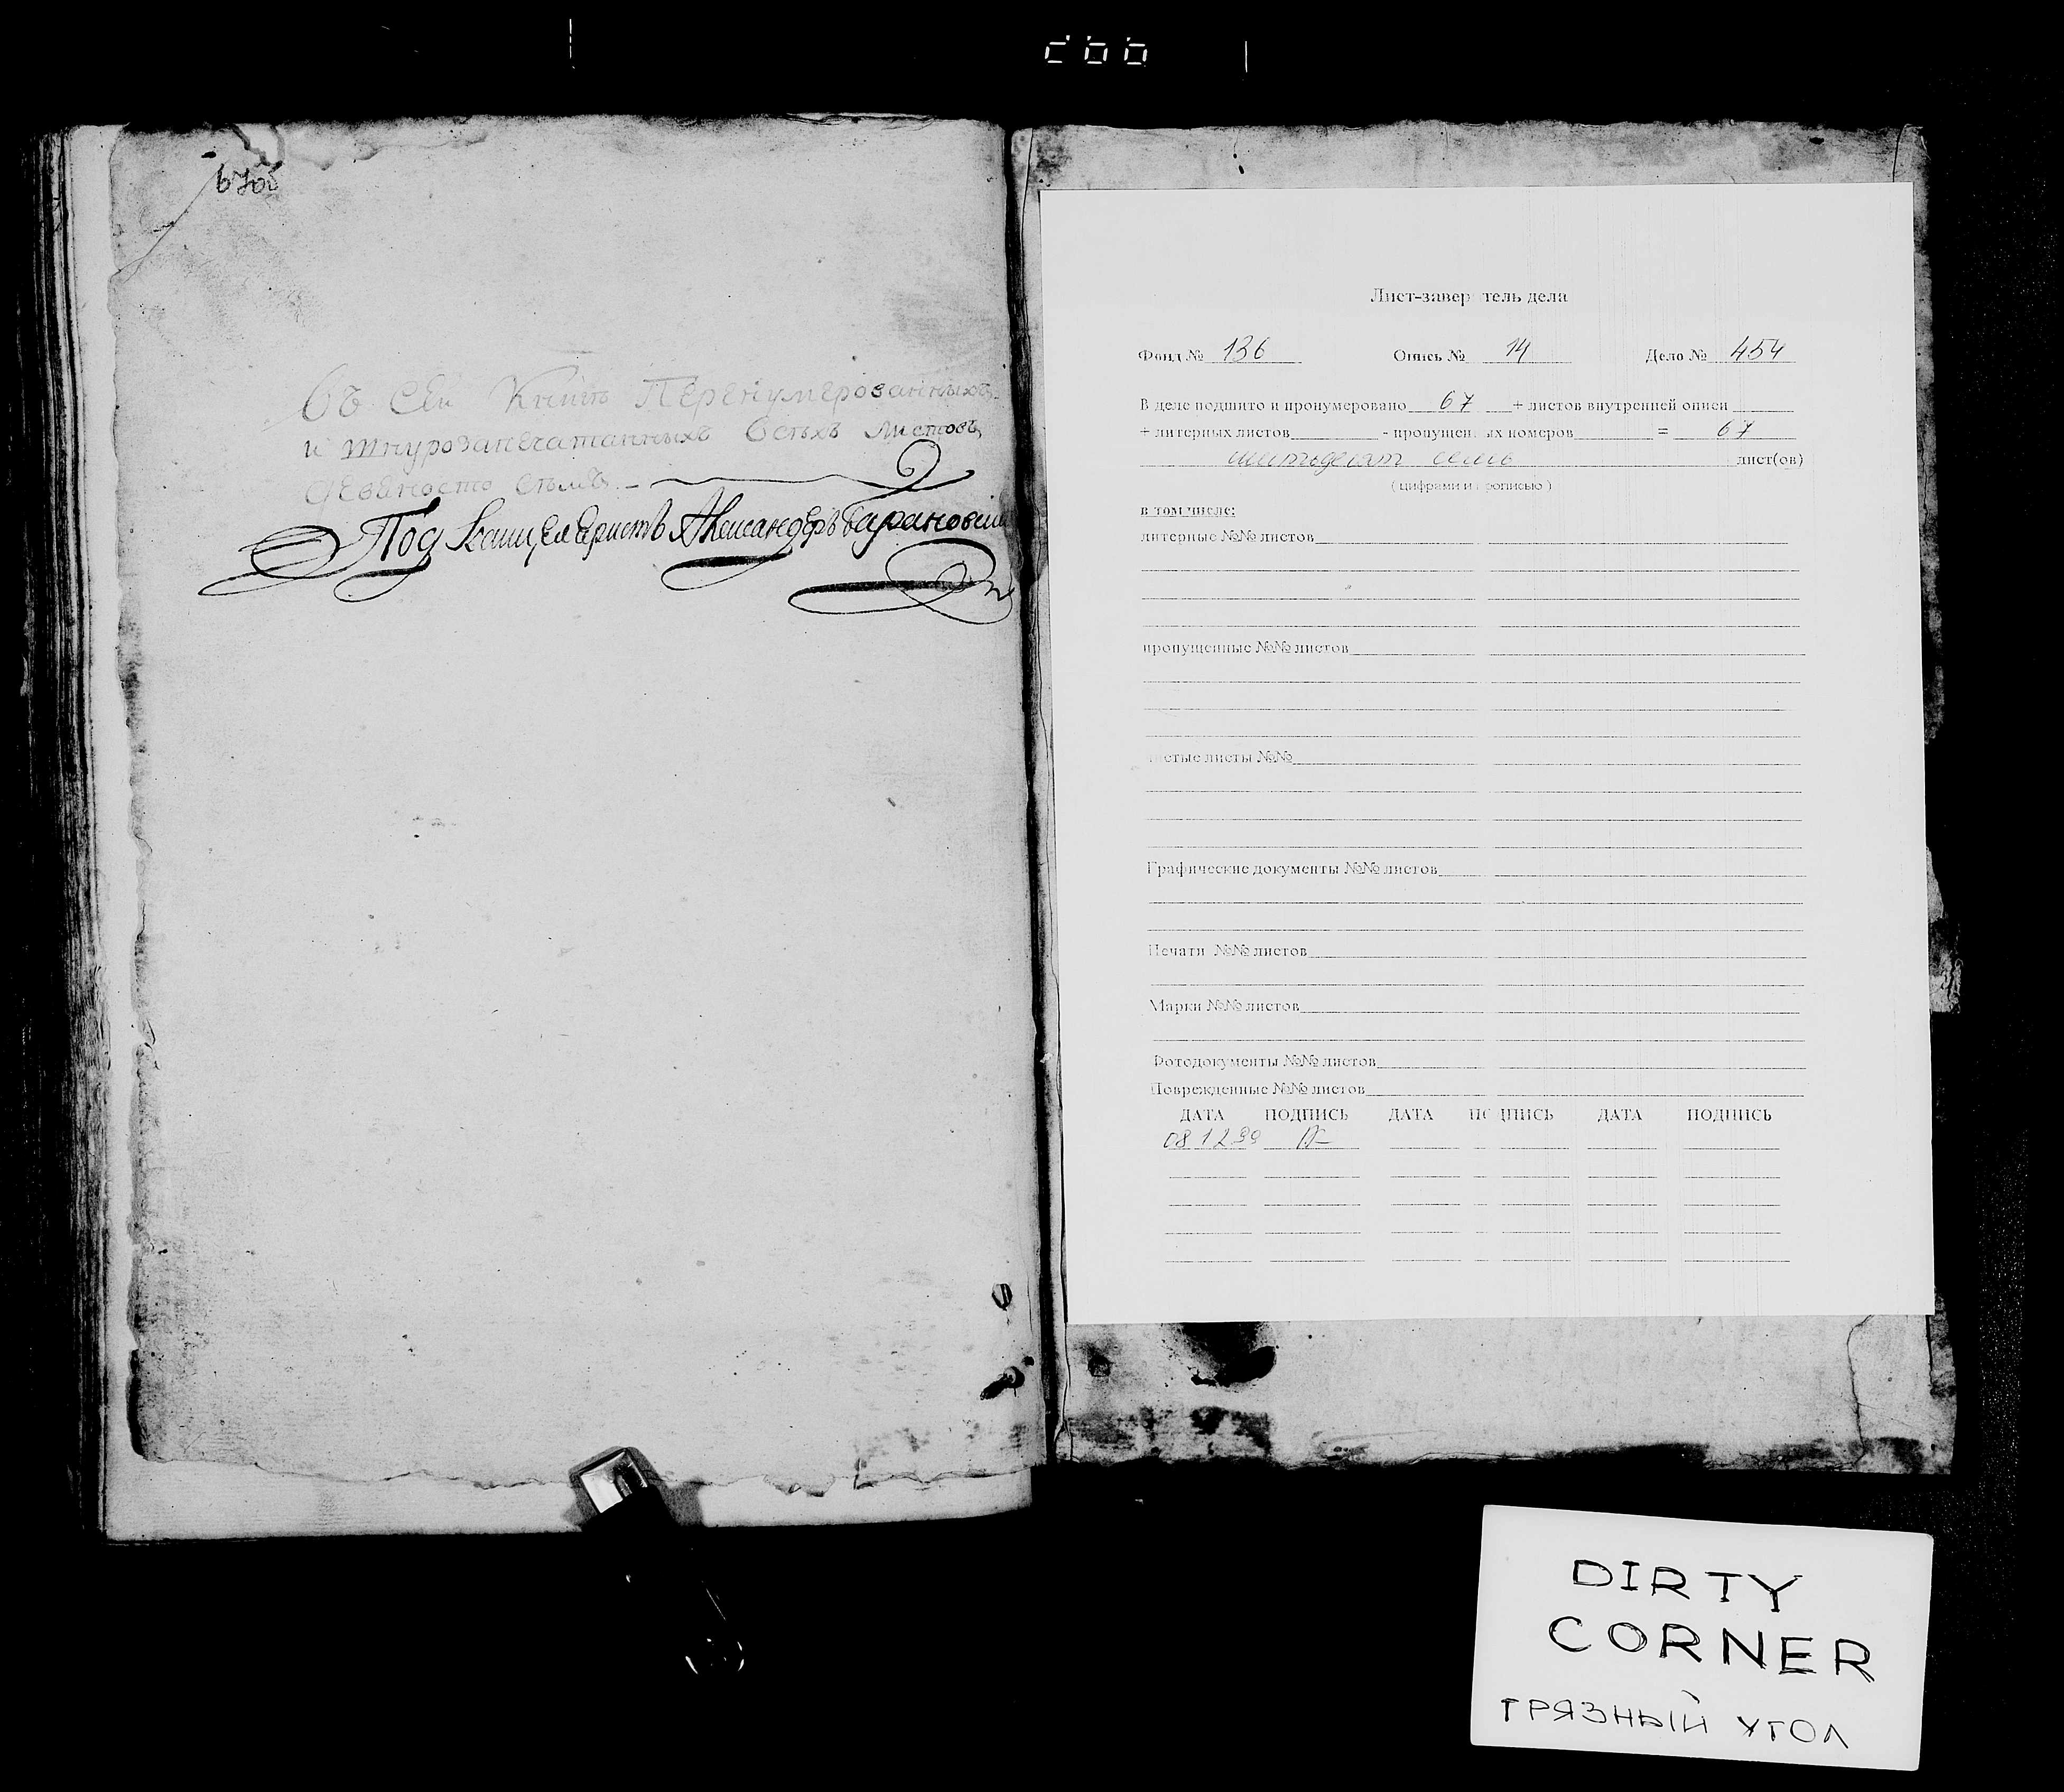 67об
Въ сей Книгѣ Перенумерованныхъ
и шнурозапечатанныхъ Всѣхъ листовъ
девяносто сѣмъ.
Под Канцеляристъ Александеръ Барановскій
Лист-завер тель дела
Фонд № 136 Опись № 14 Дело № 454
В деле подшито и пронумеровано 67 + листов внутренней описи
+ литерных листов - пропущен ых номеров = 67
шестьдесят семь лист(ов)
( цифрами и прописью )
в том числе:
литерные №№ листов
пропущенные №№ листов
стые листы №№
Графические документы №№ листов
Печати №№ листов
Марки №№ листов
Фотодокументы №№ листов
Поврежденные №№ листов
ДАТА ПОДПИСЬ ДАТА ПОДПИСЬ ДАТА ПОДПИСЬ
08 12 99
DIRTY
CORNER
ГРЯЗНЫЙ УГОЛ